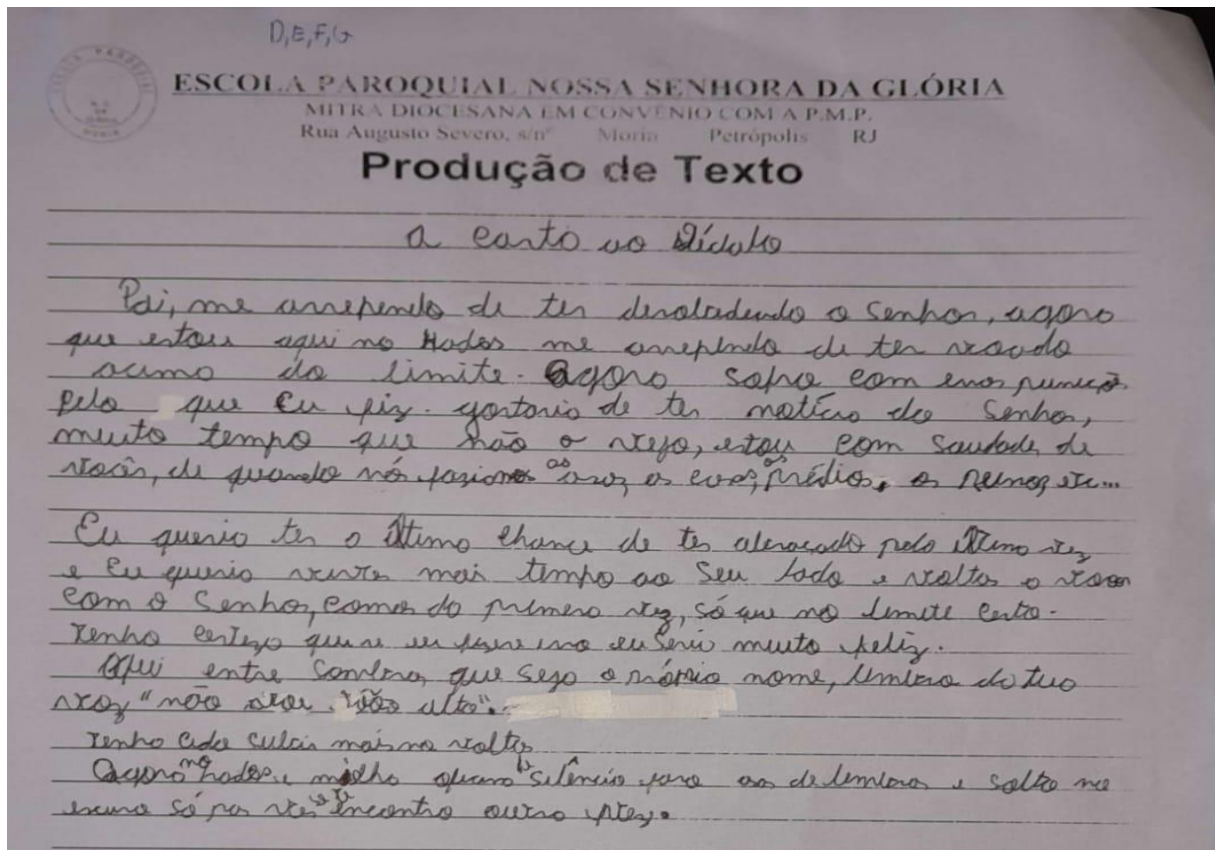 D,E,F,G
ESCOLA PAROQUIAL NOSSA SENHORA DA GLÓRIA
MITRA DIOCESANA EM CONVÊNIO COM A P.M.P.
Rua Augusto Severo, s/nº Morin Petrópolis RJ
Produção de Texto
a carta ao Dédalo
Pai, me arrependo de ter desobedecido o Senhor, agora
que estou aqui no Hades me arrependo de ter voado
acima do limite. Agora sofro com essas punição
pelo que Eu fiz. gostaria de ter notícia do Senhor,
muito tempo que não o vejo, estou com saudade de
vocês, de quando nós as asas, os prédios, etc...
Eu queria ter a última chance de ter abraçado pela última vez
e Eu queria viver mais tempo ao seu lado e voltar a voar
com o Senhor, como da primeira vez, só que no limite certo.
Tenho certeza que se eu isso eu seria muito feliz.
Aqui entre sombras que seja o próprio nome, lembro da tua
voz "não voe tão alto".
Tenho mais na voltas
Agora no hades, e silêncio para de e salto no
escuro só pra ver encontro outra vez.